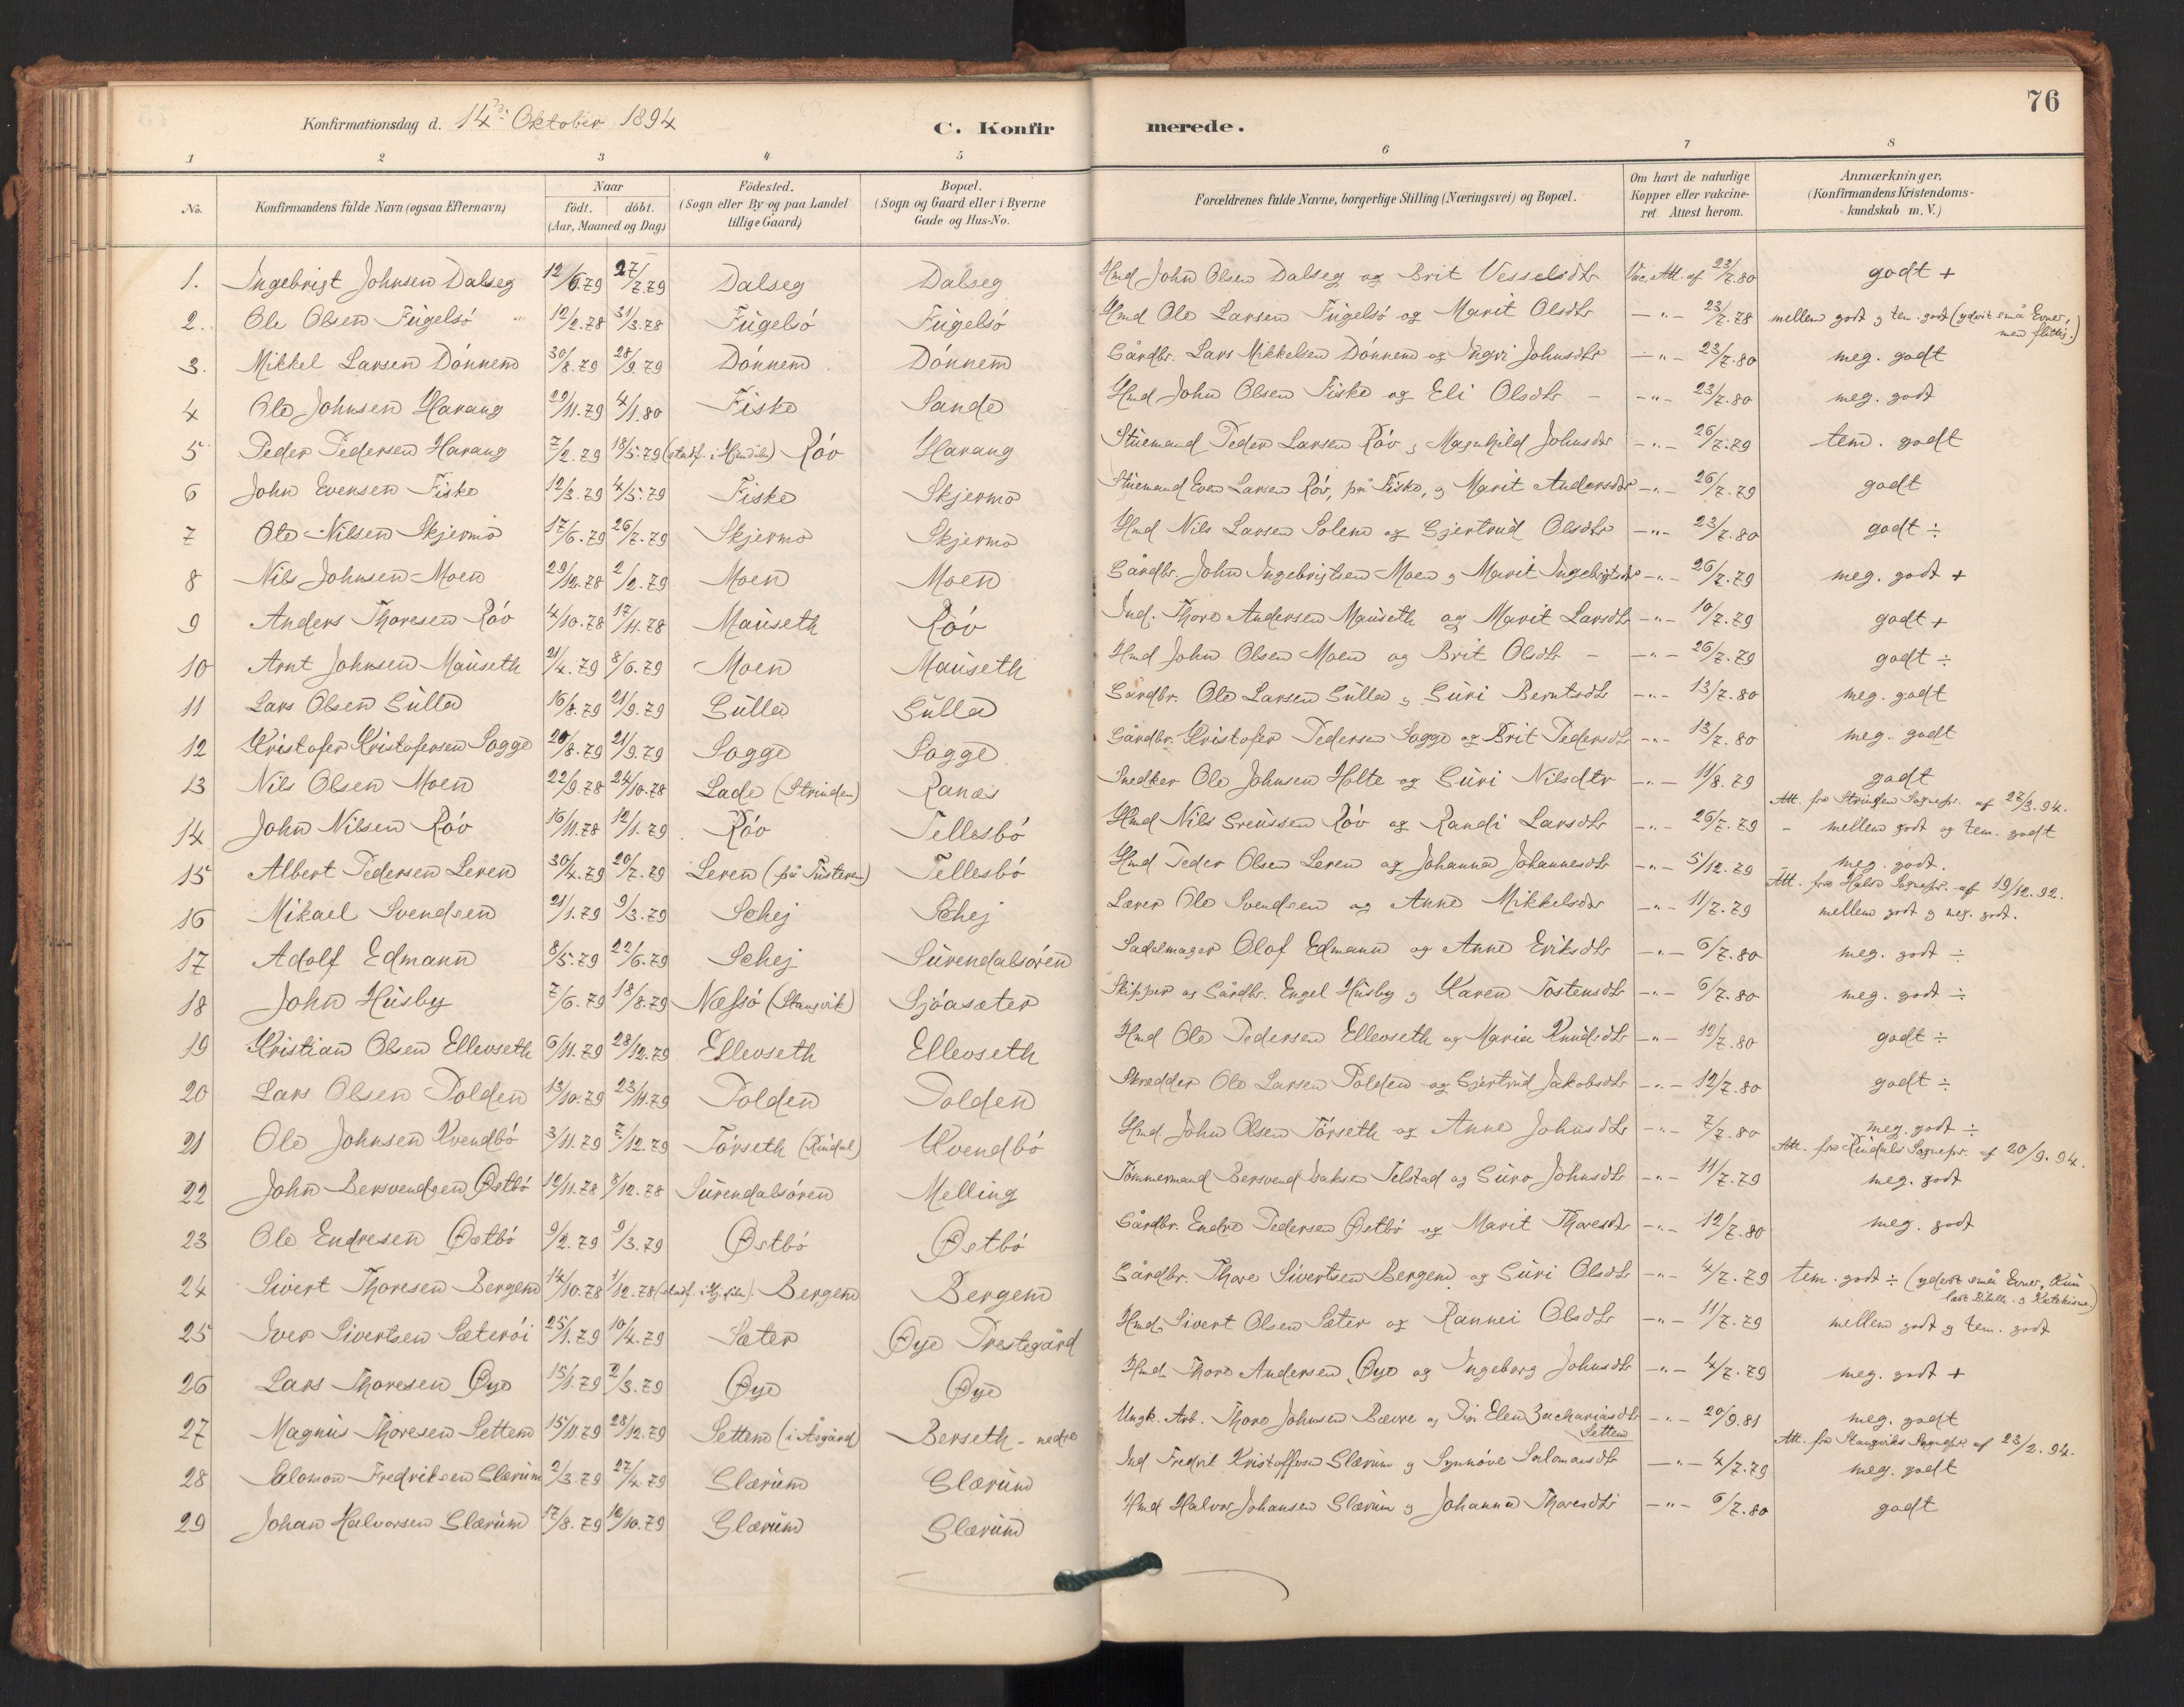 76
Konfirmationsdag d. 14de Oktober 1894 C. Konfirmerede.
1 2 3 4 5 6 7 8
No. Konfirmandens fulde Navn (ogsaa Efternavn) Naar födt. döbt. (Aar, Maaned og Dag) Födested. (Sogn eller By og paa Landet tillige Gaard) Bopæl. (Sogn og Gaard eller i Byerne Gade og Hus-No. Forældrenes fulde Navne, borgerlige Stilling (Næringsvei) og Bopæl. Om havt de naturlige Kopper eller vakcineret. Attest herom. Anmærkninger. (Konfirmandens Kristendomskundskab m. V.)
1. Ingebrigt Johnsen Dalseg 12/6.79 27/7.79 Dalseg Dalseg Hmd John Olsen Dalseg og Brit Vesselsdtr Vac. Att. af 23/7.80 godt +
2. Ole Olsen Fugelsó 12/2.78 31/3.78 Fugelsó Fugelsó Hmd Ole Larsen Fugelsó og Marit Olsdtr -"- 23/7.78 mellem godt og tem. godt (yderst små Evner, men flittig.)
3. Mikkel Larsen Dónnem 30/8.79 28/9.79 Dónnem Dónnem Gårdbr. Lars Mikkelsen Dónnem og Ingri Johnsdtr -"- 23/7.80 meg. godt
4 Ole Johnsen Harang 29/11.79 4/1.80 Fiske Sande Hmd John Olsen Fiske og Eli Olsdtr -"- 23/7.80 meg. godt
5 Peder Pedersen Harang 7/2.79 18/5.79 (stadf. i ) Róv Harang Stuemand Peder Larsen Róv og Magnhild Johnsdtr -"- 26/7.79 tem. godt
6 John Evensen Fiske 12/3.79 4/5.79 Fiske Skjermo Stuemand Even Larsen Róv, på Fiske, og Marit Andersdtr -"- 26/7.79 godt
7 Ole Nilsen Skjermo 17/6.79 26/7.79 Skjermo Skjermo Hmd Nils Larsen Solem og Gjertrud Olsdtr -"- 23/7.80 godt ÷
8 Nils Johnsen Moen 29/12.78 2/2.79 Moen Moen Gårdbr. John Ingebrigtsen Moen og Marit Ingebrigtsdtr -"- 26/7.79 meg. godt +
9 Anders Thoresen Róv 4/10.78 17/11.78 Mauseth Róv Ind. Thore Andersen Mauseth og Marit Larsdtr -"- 10/7.79 godt +
10 Arnt Johnsen Mauseth 21/4.79 8/6.79 Moen Mauseth Hmd John Olsen Moen og Brit Olsdtr -"- 26/7.79 godt ÷
11 Lars Olsen Gulla 16/8.79 21/9.79 Gulla Gulla Gårdbr. Ole Larsen Gulla og Guri Berntsdtr -"- 13/7.80 meg. godt
12 Kristofer Kristofersen Sogge 20/8.79 21/9.79 Sogge Sogge Gårdbr. Kristofer Pedersen Sogge og Brit Pedersdtr -"- 13/7.80 meg. godt
13 Nils Olsen Moen 22/9.78 24/10.78 Lade (Strinden) Ranæs Snedker Ole Johnsen Holte og Guri Nilsdtr -"- 11/8.79 godt
Att. fra Strinden Sognepr. af 27/3.94.
14 John Nilsen Róv 16/11.78 12/1.79 Róv Tellesbó Hmd Nils Sreussen Róv og Randi Larsdtr -"- 26/7.79 mellem godt og tem. godt
15 Albert Pedersen Leren 30/4.79 20/7.79 Leren (på Tusteren) Tellesbó Hmd Peder Olsen Leren og Johanna Johannesdtr -"- 5/12.79 meg. godt.
Att. fra Halse Sognepr. af 19/12.92.
16 Mikael Svendsen 21/1.79 9/3.79 Schej Schej Lærer Ole Svendsen og Anne Mikkelsdtr -"- 11/7.79 mellem godt og meg. godt.
17 Adolf Edmann 8/5.79 22/6.79 Schej Surendalsóren Sadelmager Olof Edmann og Anne Eriksdtr -"- 6/7.80 meg. godt ÷
18 John Husby 7/6.79 18/8.79 Næssó (Stangvik) Sjóasæter Skipper og Gårdbr. Engel Husby og Karen Tostensdtr -"- 6/7.80 meg. godt ÷
19 Kristian Olsen Ellevseth 6/11.79 28/12.79 Ellevseth Ellevseth Hmd Ole Pedersen Ellevseth og Maria Knudsdtr -"- 12/7.80 godt ÷
20 Lars Olsen Polden 13/10.79 23/11.79 Polden Polden Skrædder Ole Larsen Polden og Gjertrud Jakobsdtr -"- 12/7.80 godt ÷
21 Ole Johnsen Kvendbó 3/11.79 7/12.79 Tórseth (Rindal) Kvendbó Hmd. John Olsen Tórseth og Anne Johnsdtr -"- 7/7.80 meg. godt ÷
Att. fra Rindals Sognepr. af 20/9.94.
22 John Bersvendsen Østbó 12/11.78 8/12.78 Surendalsóren Melling Tómmermand Bersvend Isaksen Telstad og Guro Johnsdtr -"- 11/7.79 meg. godt
23 Ole Endresen Østbó 9/2.79 9/3.79 Østbó Østbó Gårdbr. Endre Pedersen Østbó og Marit Thoresdtr -"- 12/7.80 meg. godt
24 Sivert Thoresen Bergem 14/10.78 1/12.78 Bergem Bergem Gårdbr. Thore Sivertsen Bergem og Guri Olsdtr -"- 4/7.79 tem. godt ÷ (yderst små Evner, Kun læst Bibelh. og Katekisme)
25 Iver Sivertsen Sæterói 25/1.79 10/4.79 Sæter Øye Prestegård Hmd. Sivert Olsen Sæter og Rannei Olsdtr -"- 11/7.79 mellem godt og tem. godt
26 Lars Thoresen Øye 15/1.79 2/3.79 Øye Øye Hmd. Thore Andersen Øye og Ingeborg Johnsdtr -"- 4/7.79 meg. godt +
27 Magnus Thoresen Settem 15/11.79 28/12.79 Settem (i Åsgård) Berseth - nedre Ungk. Arb. Thore Johnsen Bævre og Elen Zachariasdtr Settem -"- 20/9.81 meg. godt
Att. fra Stangviks Sognepr. af 23/2.94.
28 Salomon Fredriksen Glærum 2/3.79 27/4.79 Glærum Glærum Ind Fredrik Kristoffersen Glærum og Synnóve Salomonsdtr -"- 4/7.79 meg. godt
29 Johan Halvorsen Glærum 17/8.79 12/10.79 Glærum Glærum Hmd Halvor Johansen Glærum og Johanna Thoresdtr -"- 6/7.80 godt